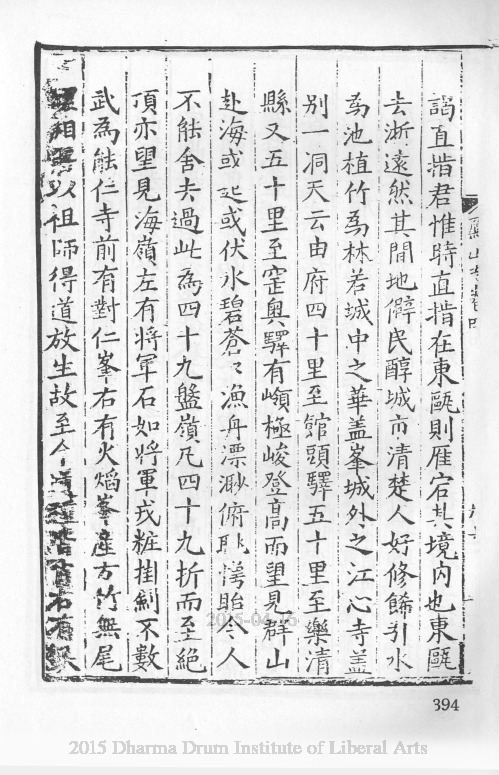 謁直指君惟時直指在東甌則雁宕其境內也東甌
去浙遠然其間地僻民醇城市清楚人好修餙引水
為池植竹為林若城中之華盖峯城外之江心寺盖
別一洞天云由府四十里至館頭驛五十里至樂清
縣又五十里至窑奧驛有嶺極峻登高而望見群山
赴海或起或伏水碧蒼々漁舟漂渺俯眺愕眙令人
不能舍去過此為四十九盤嶺凡四十九折而至絕
頂亦望見海嶺左有將軍石如將軍戎粧掛劍不數
武為能仁寺前有對仁峯右有火熖峯產方竹無尾
以祖師得道放生故至今
394
2015-04-16
2015 Dharma Drum Institute of Liberal Arts